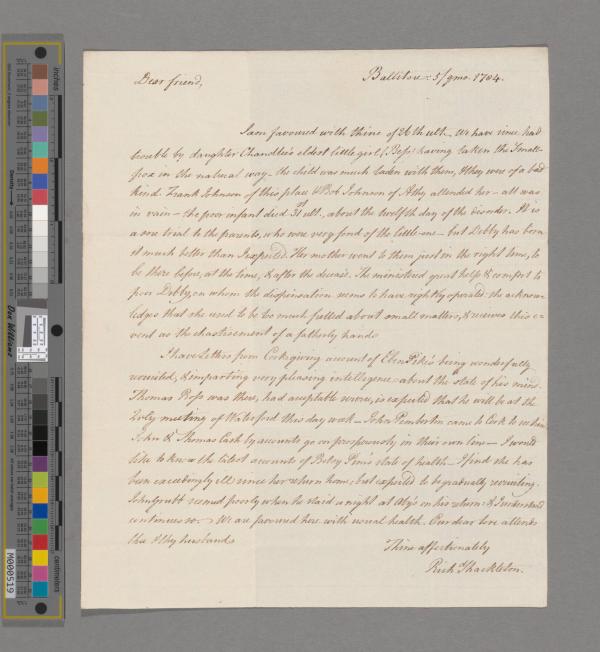 Dear friend,
Ballitore: 5/9mo. 1784.
I am favoured with thine of 26th ult. We have since had
trouble by daughter Chandlee's eldest little girl (Bess) having taken the Small-
pox in the natural way – the child was much laden with them, & they were of a bad
kind. Frank Johnson of this place & Bob Johnson of Athy attended her – all was
in vain – the poor infant died 31st ult. about the twelfth day of the disorder. It is
a sore trial to the parents, who were very fond of the little one – but Debby has born
it much better than I expected. Her mother went to them just in the right time, to
be there before, at the time, & after the decease. She ministered great help & comfort to
poor Debby, on whom the dispensation seems to have rightly operated: she acknow-
ledges that she used to be too much pulled about small matters, & receives this e-
vent as the chastisement of a fatherly hand.
I have Letters from Cork giving account of Eben Pike's being wonderfully
recruited, & imparting very pleasing intelligence about the state of his mind.
Thomas Ross was there, had acceptable service, is expected that he will be at the
meeting of Waterford this day week – John Pemberton came to Cork to
John & Thomas Cash by accounts go on prosperously in their own line – I would
like to know the latest accounts of Betsy Pim's state of health – I find she has
been exceedingly ill since her return home, but expected to be gradually recruiting.
John Grubb seemed poorly when he staid a night at Aby's on his return & I understand
continues so. We are favoured here with usual health. Our dear love attends
thee & thy husband.
Thine affectionately
Rich Shackleton.
inches
centimetres
Don Williams
M000519